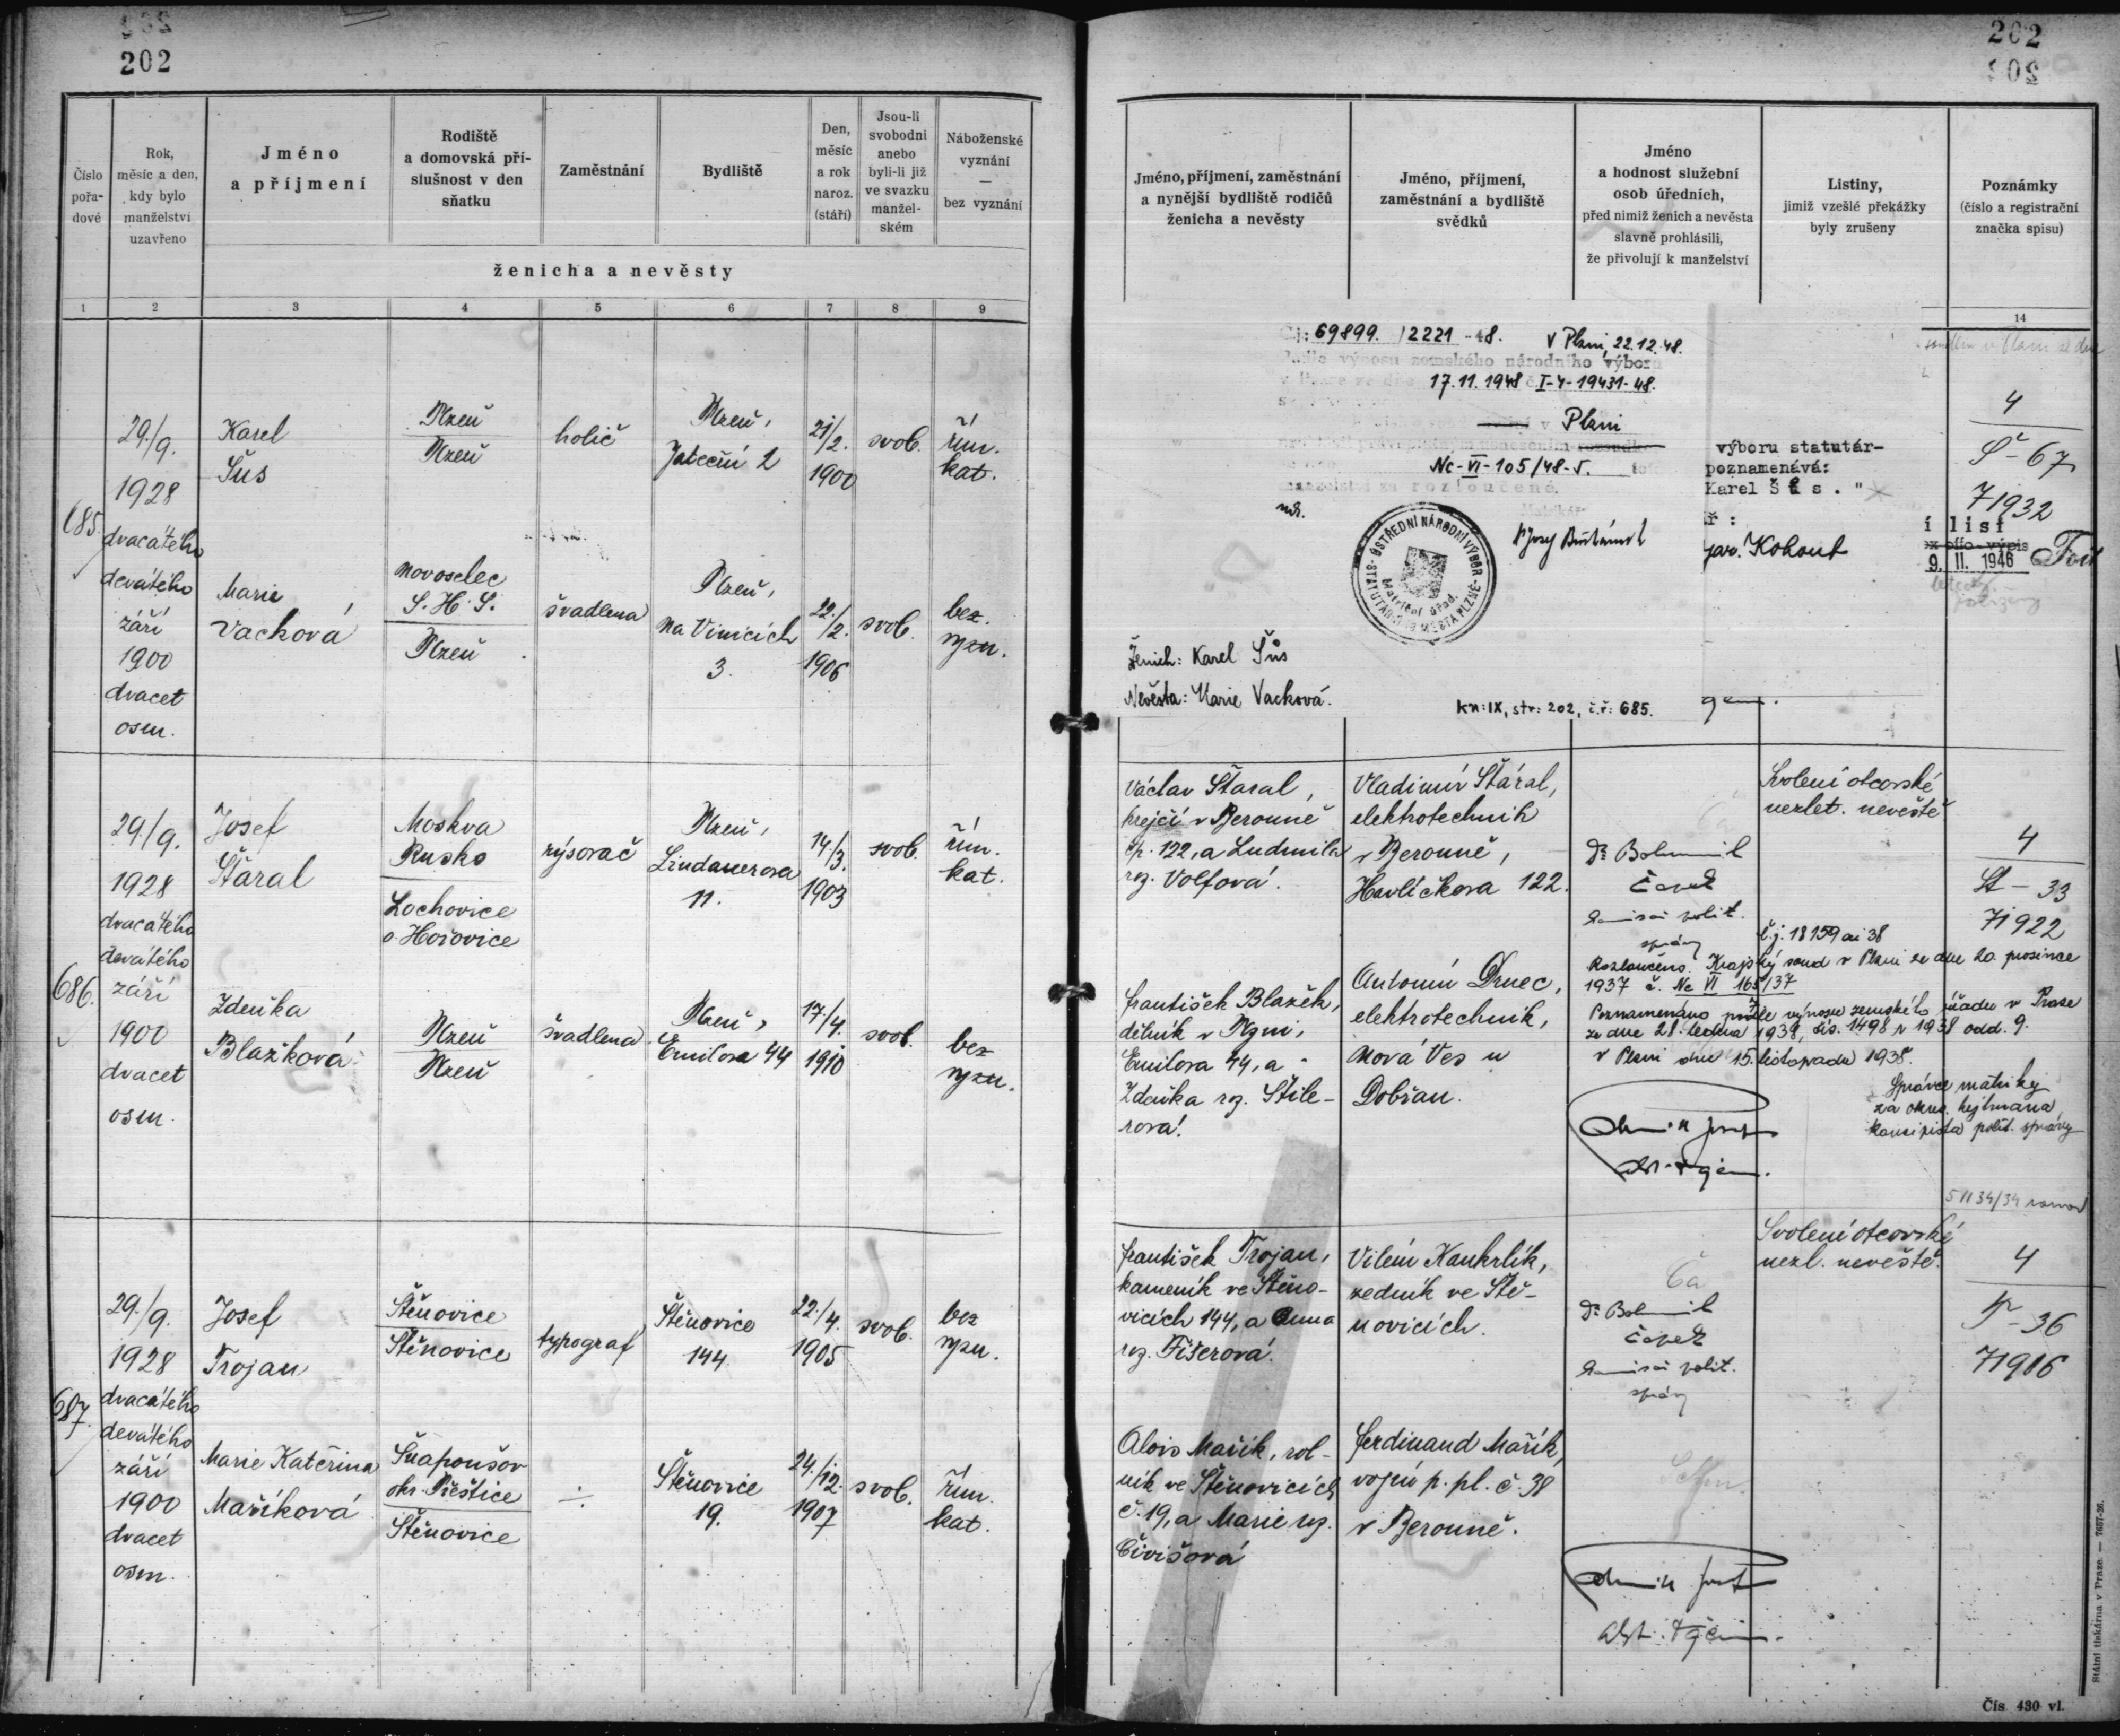 202
202
Číslo pořadové
Rok, měsíc a den, kdy bylo manželství uzavřeno
Jméno a příjmení
Rodiště a domovská příslušnost v den sňatku
Zaměstnání
Bydliště
Den, měsíc a rok naroz. (stáří)
Jsou-li svobodni anebo byli-li již ve svazku manželském
Náboženské vyznání — bez vyznání
ženicha a nevěsty
1 2 3 4 5 6 7 8 9
685.
29./9.
1928
dvacátého
devátého
září
1900
dvacet
osm.
Karel
Šus
Plzeň
Plzeň
holič
Plzeň,
Jateční 2
21/2.
1900
svob.
řím.
kat.
Marie
Vacková
Novoselec
S. H. S.
Plzeň
švadlena
Plzeň,
Na Vinicích
3.
22./2.
1906
svob.
bez.
vyzn.
686.
29./9.
1928
dvacátého
devátého
září
1900
dvacet
osm.
Josef
Šťáral
Moskva
Rusko
Lochovice
o. Hořovice
rýsovač
Plzeň,
Lindauerova
11.
14/3.
1903
svob.
řím.
kat.
Zdeňka
Blažková
Plzeň
Plzeň
švadlena
Plzeň,
Emilova 44
17/4.
1910
svob.
bez
vyzn.
687.
29./9.
1928
dvacátého
devátého
září
1900
dvacet
osm.
Josef
Trojan
Štěnovice
Štěnovice
typograf
Štěnovice
144
22./4.
1905
svob.
bez
vyzn.
Marie Kateřina
Maříková
Snapoušov
okr. Přeštice
Štěnovice
Štěnovice
19.
24./12.
1907
svob.
řím.
kat.
202
202
Jméno, příjmení, zaměstnání a nynější bydliště rodičů ženicha a nevěsty
Jméno, příjmení, zaměstnání a bydliště svědků
Jméno a hodnost služební osob úředních, před nimiž ženich a nevěsta slavně prohlásili, že přivolují k manželství
Listiny, jimiž vzešlé překážky byly zrušeny
Poznámky (číslo a registrační značka spisu)
14
Č.j: 69899. /2221 -48. V Plzni, 22.12.48.
výnosu zemského národního výboru
17.11.1948 č. I-4-19431-48.
v Plzni
Nc-VI-105/48-5.
manželství za rozloučené.
ÚSTŘEDNÍ NÁRODNÍ VÝBOR
STATUTÁRNÍHO MĚSTA PLZNĚ
Matriční úřad.
výboru statutár-
poznamenává:
Karel Šůs."
jar. Kohout
í list
9. II. 1946
4
Š-67
71932
Ženich: Karel Šůs
Nevěsta: Marie Vacková.
kn: IX, str: 202, č.ř: 685.
Václav Šťáral,
krejčí v Berouně
čp. 122, a Ludmila
roz. Volfová.
Vladimír Šťáral,
elektrotechnik
v Berouně,
Havlíčkova 122.
Dr. Bohumil
Čapek
komisař polit.
správy
Svolení otcovské
nezlet. nevěstě
4
St - 33
71922
č.j. 18159 ai 38
Rozloučeno. Krajský soud v Plzni ze dne 20. prosince
1937 č. Nc VI 165/37
Poznamenáno podle výnosu zemského úřadu v Praze
ze dne 28. ledna 1938, čís. 1498 r 1938 odd. 9.
V Plzni dne 15. listopadu 1938.
Správce matriky
za okres. hejtmana
koncipista polit. správy
František Blažek,
dělník v Plzni,
Emilova 44, a
Zdeňka roz. Štile-
rová.
Antonín Drnec,
elektrotechnik,
Nová Ves u
Dobřan.
František Trojan,
kameník ve Štěno-
vicích 144, a Anna
roz. Fišerová.
Vilém Kaukrlík,
zedník ve Ště-
novicích.
Dr. Bohumil
Čapek
komisař polit.
správy
Svolení otcovské
nezl. nevěstě.
4
T-36
71916
Alois Mařík, rol-
ník ve Štěnovicích
č. 19, a Marie roz.
Čivišová
Ferdinand Mařík,
vojín p. pl. č. 38
v Berouně.
Státní tiskárna v Praze. — 7657-26.
Čís 430 vl.